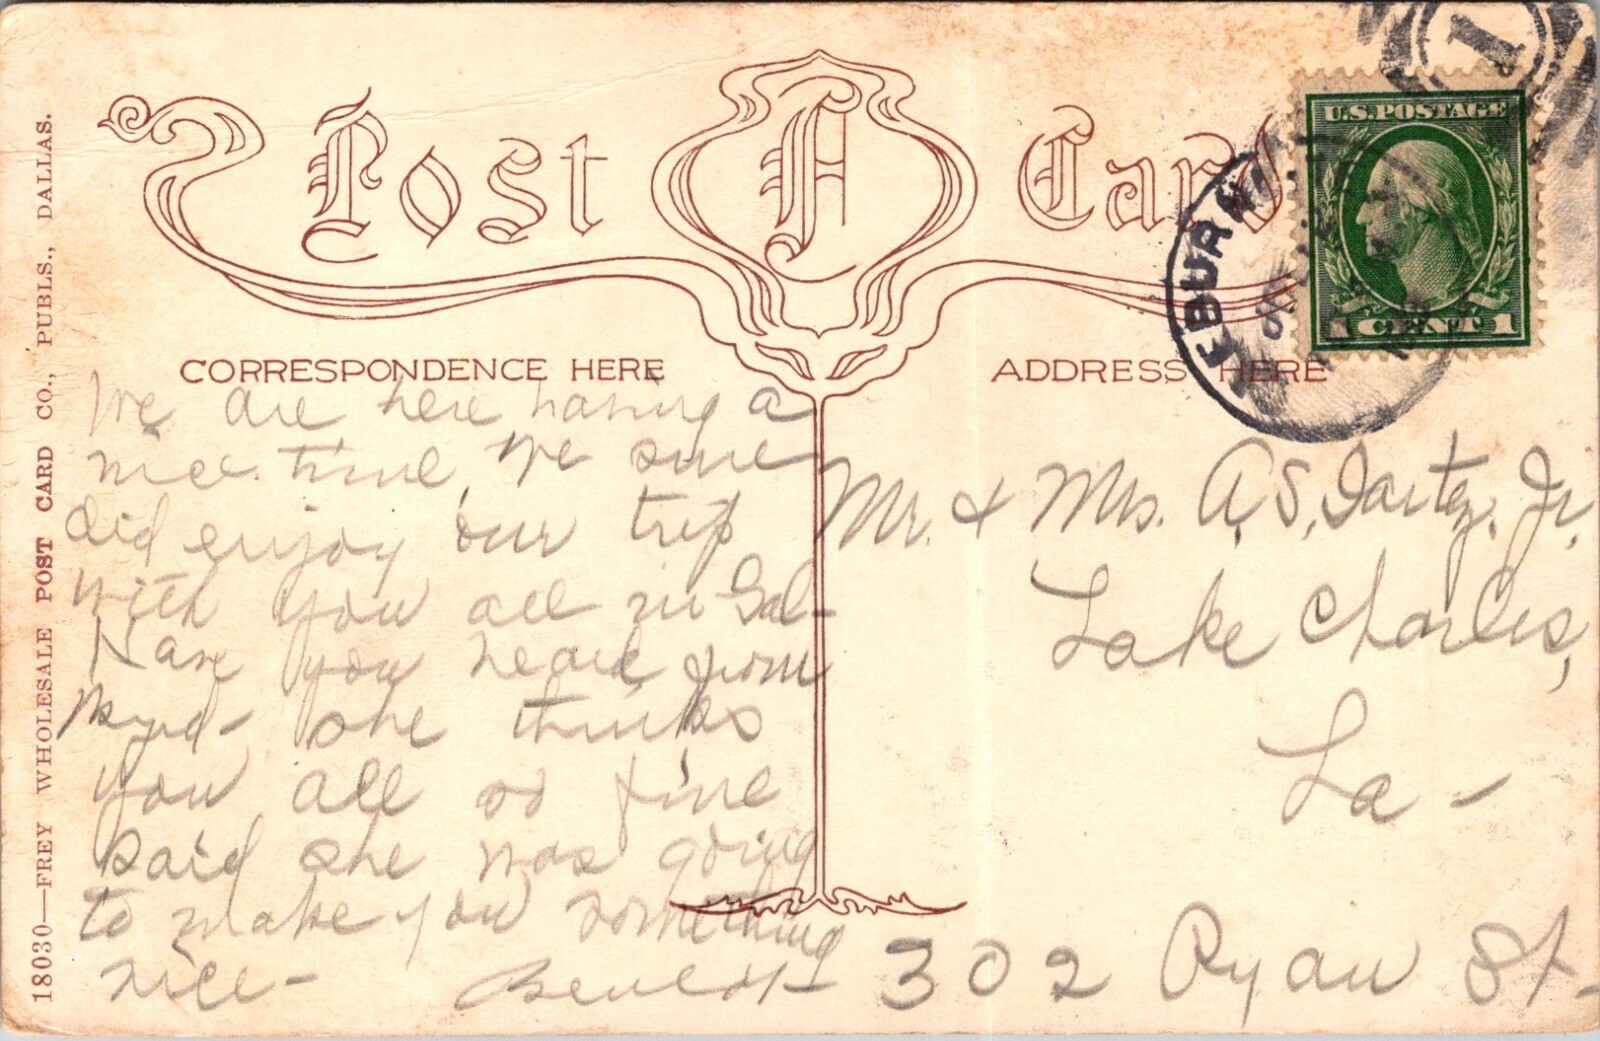 Post A Card
U.S. POSTAGE
1 CENT 1
1
CORRESPONDENCE HERE
ADDRESS HERE
We are here having a
nice time, We sure
did enjoy our trip
with you all in Gal-
Have you heard from
she thinks
you all so fine
said she was going
to make you something
nice-
Mr. & Mrs. A.S. Jr.
Lake Charles,
La-
302 Ryan St-
18030—FREY WHOLESALE POST CARD CO., PUBLS., DALLAS.